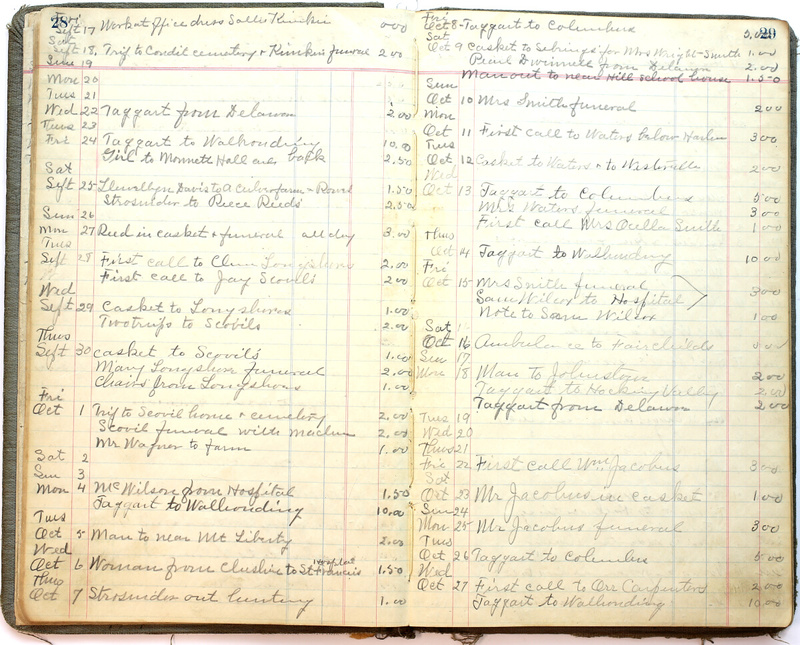 28
Fri
Sept 17 Work at office dress Sallie Kimkin 000
Sat
Sept 18, Trip to Condil cemetery + Kimkin funeral 2 00
Sun 19
Mon 20
Tues 21
Wed 22 Taggart from Delawn 2.00
Tues 23
Fri 24 Taggart to Walhonding 10.00
Girl to Monnett Hall and back 2.50
Sat
Sept 25 Llewellyn Davis to farm - Round 1.50
Strosnider to Reece Reeds 2.50
Sun 26
Mon 27 Reed in casket + funeral all day 3.00
Tues
Sept 28 First call to Clum Longshore 2.00
First call to Jay Scovils 2 00
Wed
Sept 29 Casket to Longshores 1.00
Two trips to Scovils 2.00
Thus
Sept 30 casket to Scovils 1.00
Mary Longshore funeral 2.00
Chairs from Longshores 1.00
Fri
Oct 1 Trip to Scovil home + cemetery 2.00
Scovil funeral with machine 2.00
Mr Wagner to farm 1.00
Sat 2
Sun 3
Mon 4 McWilson from Hospital 1.50
Taggart to Walhonding 10.00
Tues
Oct 5 Man to near Mt Liberty 2.00
Wed
Oct 6 Woman from Cheshire to St Francis Hospital 1.50
Thus
Oct 7 Strosnider out hunting 1.00
29
Fri
Oct 8 - Taggart to Columbus 5.00
Sat
Oct 9 Casket to Sebrings for Mrs Wright-Smith 1.00
Pearl Dwinnell from Delawn 2.00
Man out to near Hill school house 1.50
Sun
Oct 10 Mrs Smith funeral 2 00
Mon
Oct 11 First call to Waters below Harlem 3 00
Tues
Oct 12 Casket to Waters + to Westerville 2 00
Wed
Oct 13 Taggart to Columbus 5 00
Mrs Waters funeral 3 00
First call Mrs Smith 1 00
Thus
Oct 14 Taggart to Walhonding 10 00
Fri
Oct 15 Mrs Smith funeral
Sam Wilcox to Hospital 3 00
Note to Sam Wilcox 1 00
Sat
Oct 16 Ambulance to Fairchilds
Sun 17
Mon 18 Man to Johnstown 2 00
Taggart to Hocking Valley 2 00
Taggart from Delawn 2 00
Tues 19
Wed 20
Thus 21
Fri 22 First call Wm Jacobus 3 00
Sat
Oct 23 Mr Jacobus in casket 1 00
Sun 24
Mon 25 Mr Jacobus funeral 3 00
Tues
Oct 26 Taggart to Columbus 5 00
Wed
Oct 27 First call to Orr Carpenters 2 00
Taggart to Walhonding 10 00